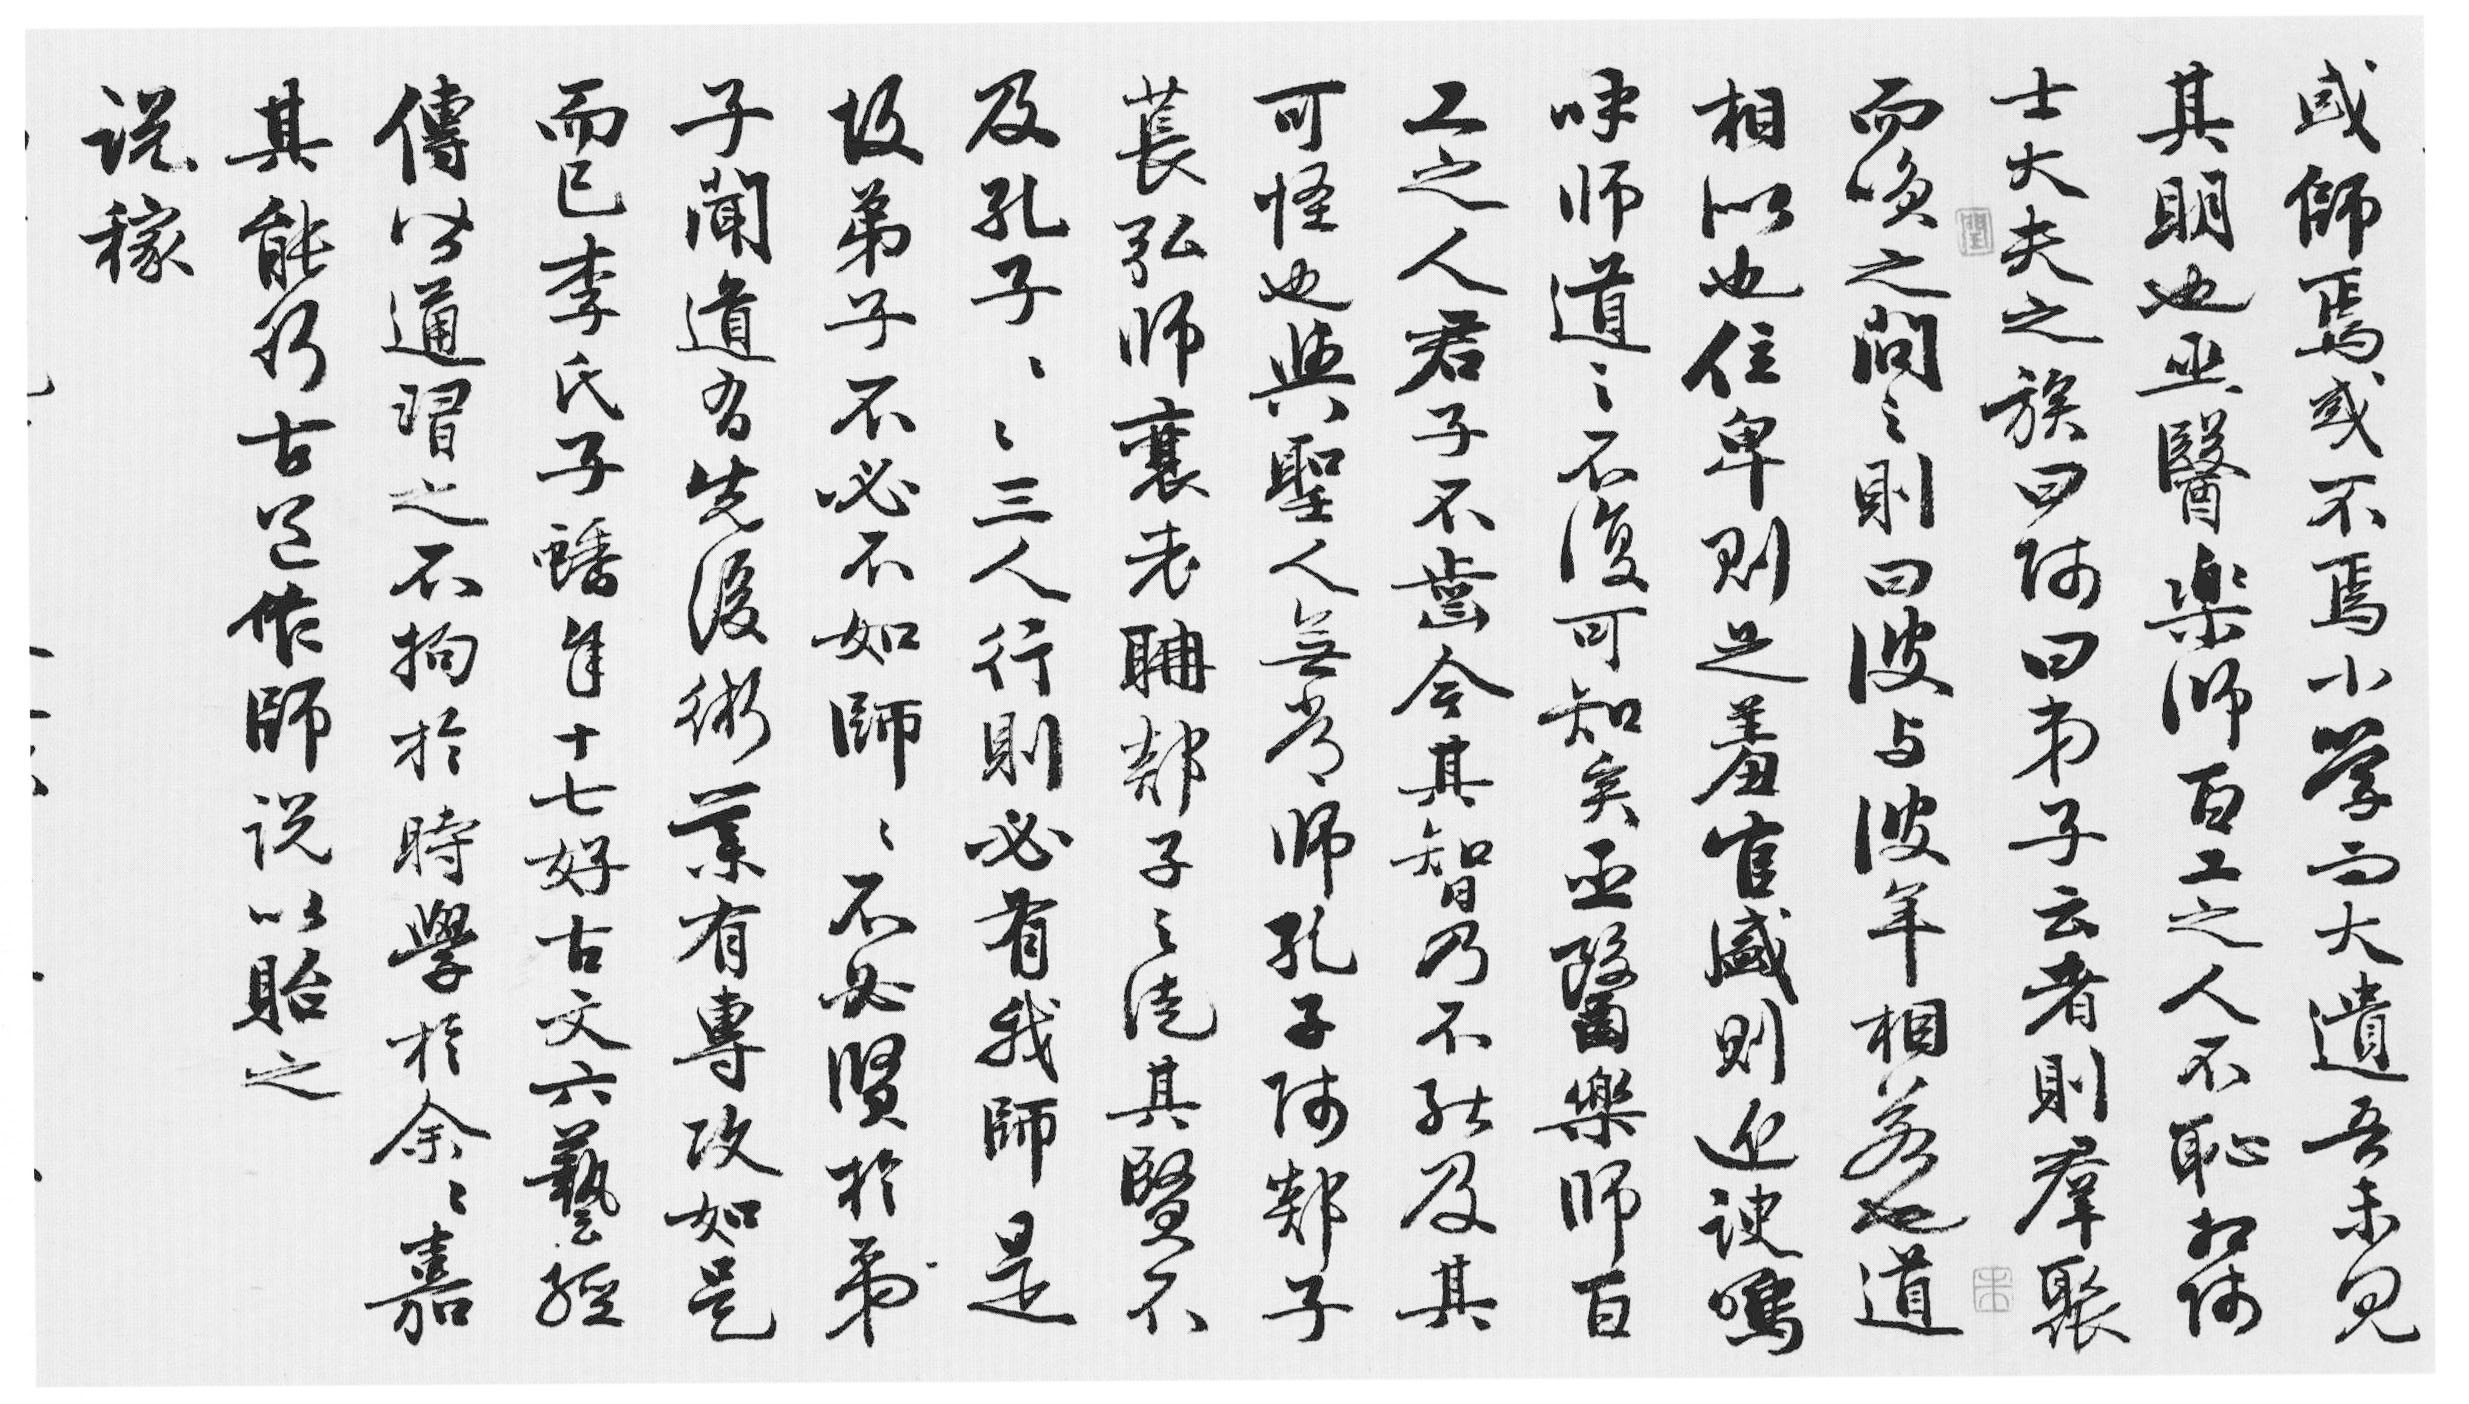 或師焉或不焉小学而大遺吾未見
其明也巫醫楽师百工之人不恥相师
士大夫之族曰师曰弟子云者則羣聚
而笑之問之則曰彼与彼年相若也道
相似也位卑则足羞官盛则近諛嗚
呼师道〻不復可知矣巫醫樂师百
工之人君子不齒今其智乃不能及其
可怪也與聖人無常师孔子师郯子
萇弘师襄老聃郯子〻徒其賢不
及孔子〻〻三人行則必有我師是
故弟子不必不如師〻不必贤於弟
子聞道有先後術業有專攻如是
而已李氏子蟠年十七好古文六藝經
傳皆通習之不拘於時學於余〻嘉
其能行古道作師说以貽之
说稼